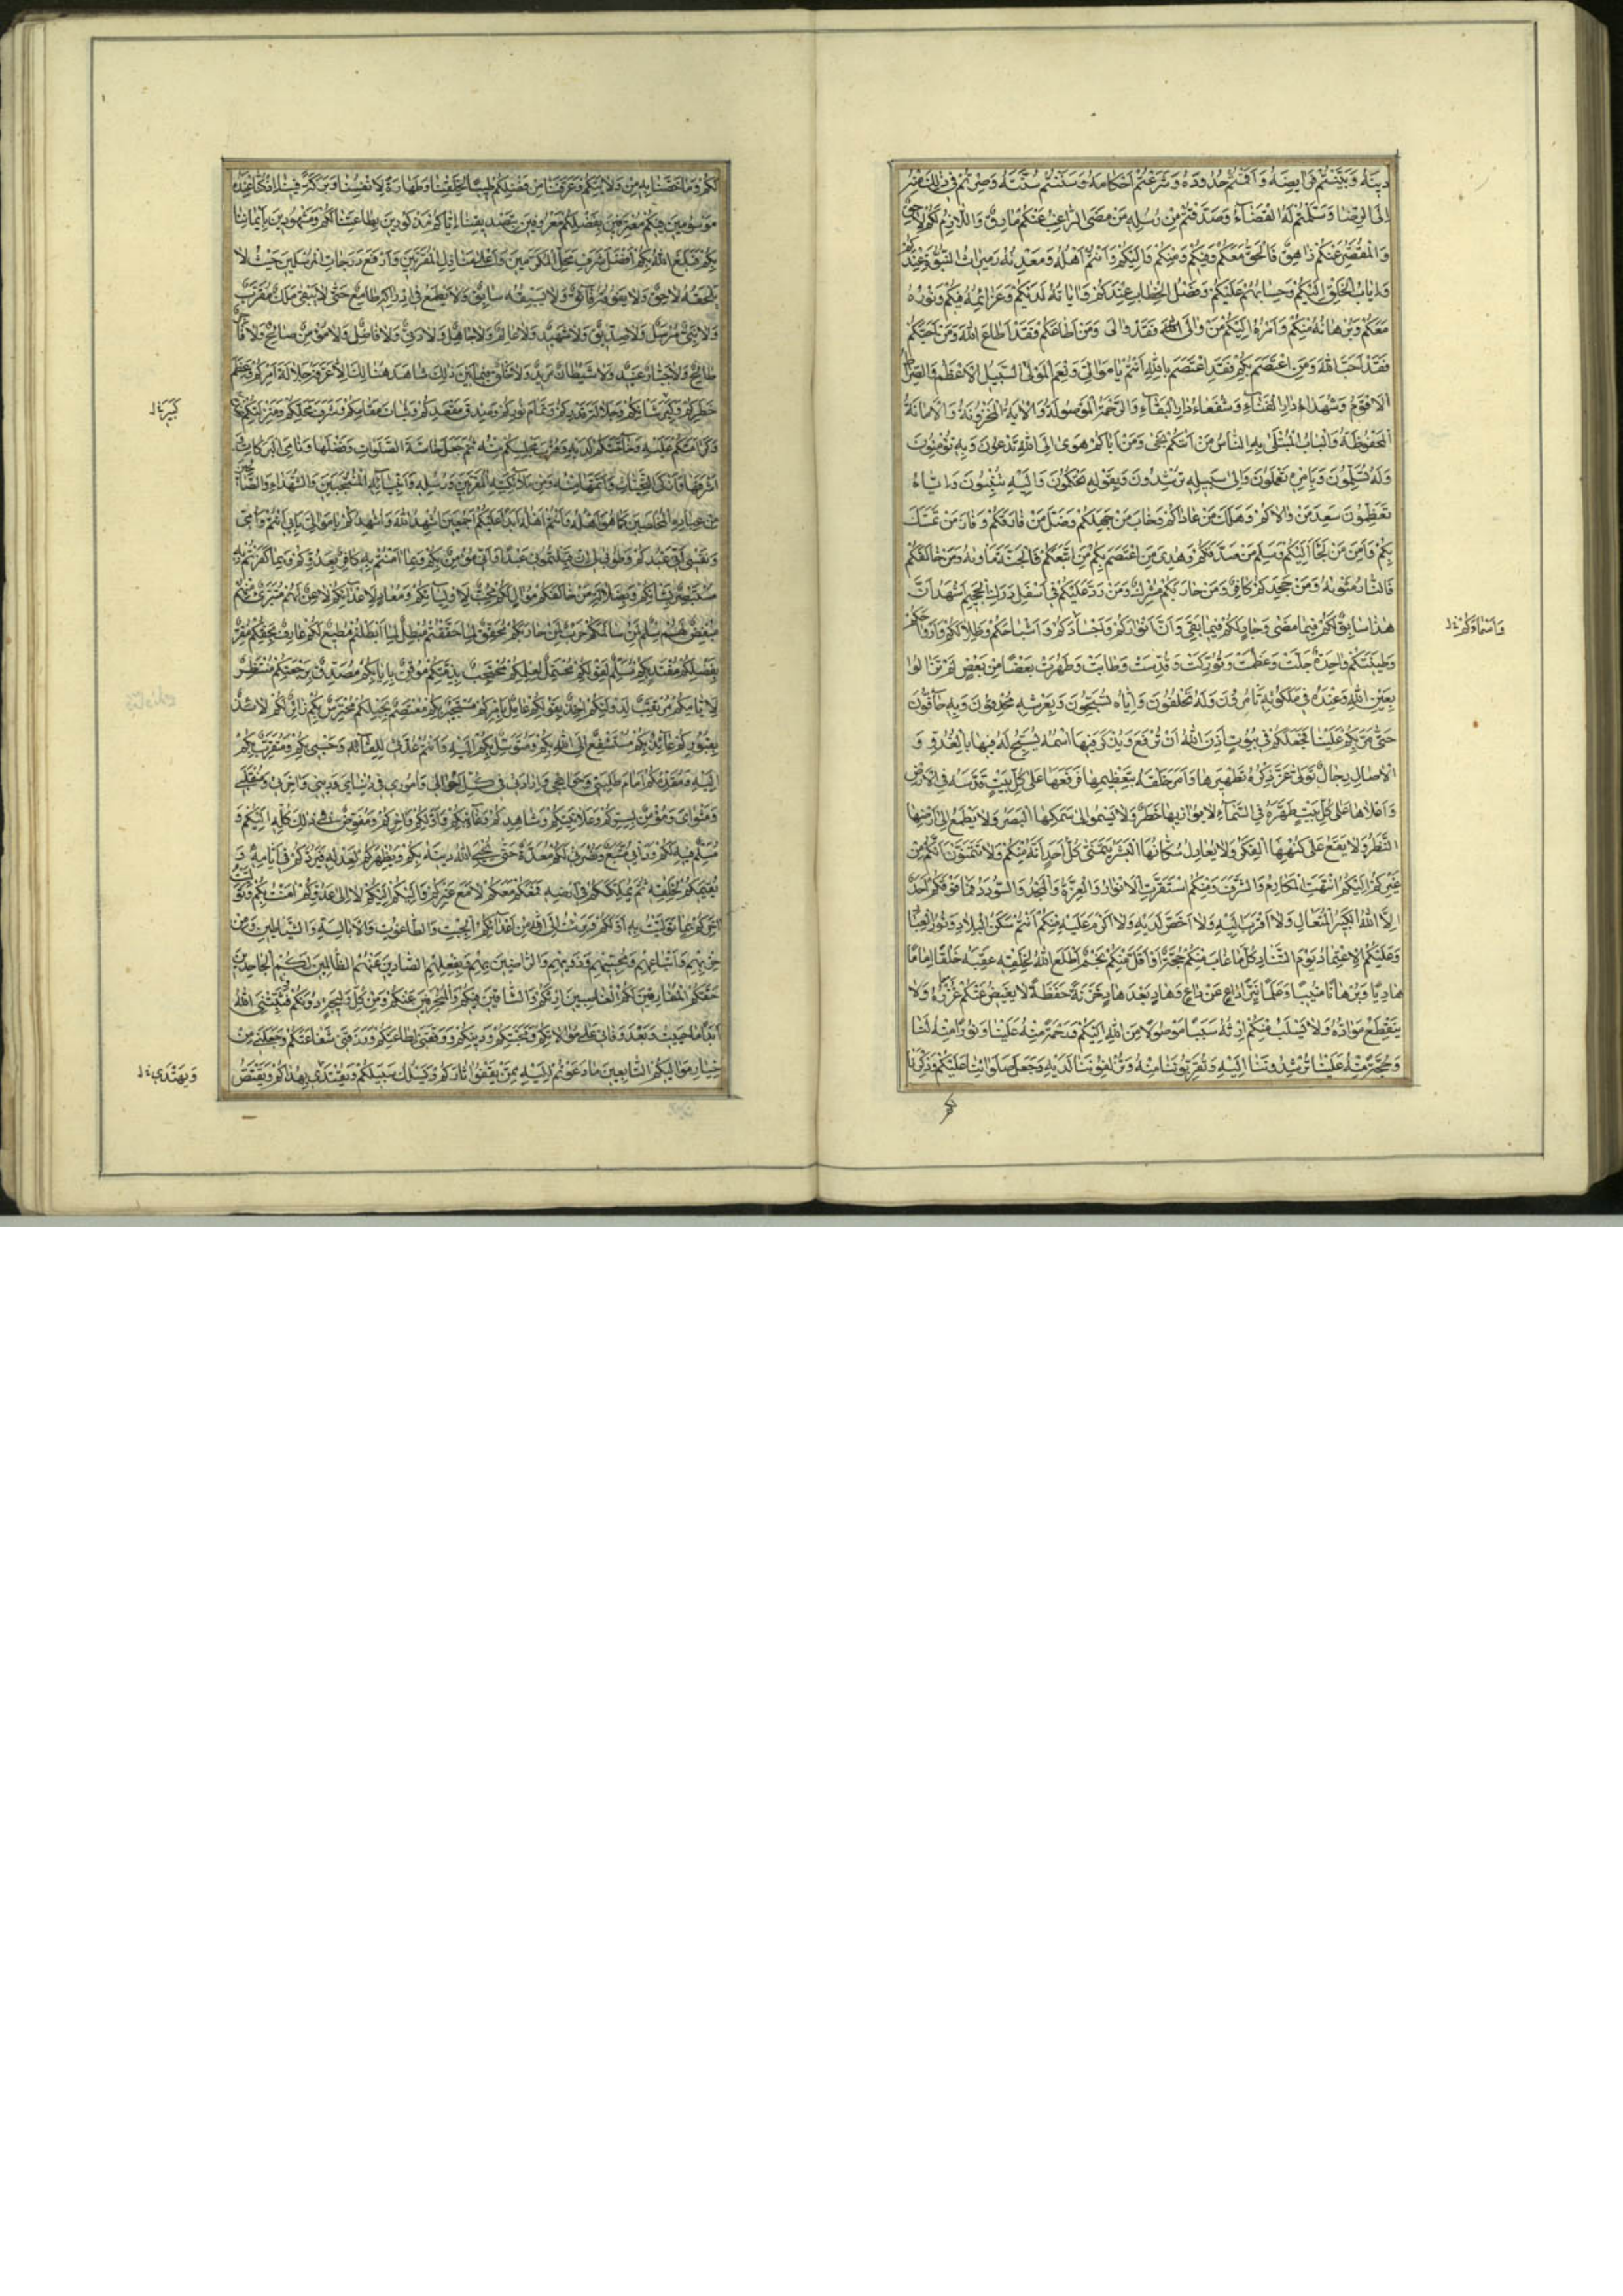 دِينَهُ وَبَيَّنْتُمْ فَرَايِضَهُ وَاَقَمْتُمْ حُدُودَهُ وَشَرَعْتُمْ اَحْكَامَهُ وَسَنَنْتُمْ سُنَّتَهُ وَصِرْتُمْ فِي ذٰلِكَ مِنْهُ
اِلَى الرِّضَا وَسَلَّمْتُمْ لَهُ الْقَضَآءَ وَصَدَّقْتُمْ مِنْ رُسُلِهِ مَنْ مَضَى الرَّاغِبُ عَنْكُمْ مَارِقٌ وَاللَّازِمُ لَكُمْ لَاحِقٌ
وَالْمُقَصِّرُ عَنْكُمْ زَاهِقٌ فَالْحَقُّ مَعَكُمْ وَفِيكُمْ وَمِنْكُمْ وَاِلَيْكُمْ وَاَنْتُمْ اَهْلُهُ وَمَعْدِنُهُ وَمِيرَاثُ النُّبُوَّةِ عِنْدَكُمْ
وَاِيَابُ الْخَلْقِ اِلَيْكُمْ وَحِسَابُهُمْ عَلَيْكُمْ وَفَصْلُ الْخِطَابِ عِنْدَكُمْ وَاٰيَاتُهُ لَدَيْكُمْ وَعَزَائِمُهُ فِيكُمْ وَنُورُهُ
مَعَكُمْ وَبُرْهَانُهُ مِنْكُمْ وَاَمْرُهُ اِلَيْكُمْ مَنْ وَالَى اللّٰهَ فَقَدْ وَالَى وَمَنْ اَطَاعَكُمْ فَقَدْ اَطَاعَ اللّٰهَ وَمَنْ اَحَبَّكُمْ
فَقَدْ اَحَبَّ اللّٰهَ وَمَنِ اعْتَصَمَ بِكُمْ فَقَدِ اعْتَصَمَ بِاللّٰهِ اَنْتُمْ يَا مَوَالِيَّ وَنِعْمَ الْمَوْلَى السَّبِيلُ الْاَعْظَمُ وَالصِّرَاطُ
الْاَقْوَمُ وَشُهَدَاءُ دَارِ الْفَنَاءِ وَشُفَعَاءُ دَارِ الْبَقَاءِ وَالرَّحْمَةُ الْمَوْصُولَةُ وَالْاٰيَةُ الْمَخْزُونَةُ وَالْاَمَانَةُ
الْمَحْفُوظَةُ وَالْبَابُ الْمُبْتَلَى بِهِ النَّاسُ مَنْ اَتَاكُمْ نَجَى وَمَنْ اَبَاكُمْ هَوَى اِلَى اللّٰهِ تَدْعُونَ وَبِهِ تُؤْمِنُونَ
وَلَهُ تُسَلِّمُونَ وَبِاَمْرِهِ تَعْمَلُونَ وَاِلَى سَبِيلِهِ تُرْشِدُونَ وَبِقَوْلِهِ تَحْكُمُونَ وَاِلَيْهِ تُنِيبُونَ وَاِيَّاهُ
تُعَظِّمُونَ سَعِدَ مَنْ وَالَاكُمْ وَهَلَكَ مَنْ عَادَاكُمْ وَخَابَ مَنْ جَحَدَكُمْ وَضَلَّ مَنْ فَارَقَكُمْ وَفَازَ مَنْ تَمَسَّكَ
بِكُمْ وَاَمِنَ مَنْ لَجَاَ اِلَيْكُمْ وَسَلِمَ مَنْ صَدَّقَكُمْ وَهُدِيَ مَنِ اعْتَصَمَ بِكُمْ مَنِ اتَّبَعَكُمْ فَالْجَنَّةُ مَاْوٰيهُ وَمَنْ خَالَفَكُمْ
فَالنَّارُ مَثْوٰيهُ وَمَنْ جَحَدَكُمْ كَافِرٌ وَمَنْ حَارَبَكُمْ مُشْرِكٌ وَمَنْ رَدَّ عَلَيْكُمْ فِي اَسْفَلِ دَرَكِ الْجَحِيمِ اَشْهَدُ اَنَّ
هٰذَا سَابِقٌ لَكُمْ فِيمَا مَضَى وَجَارٍ لَكُمْ فِيمَا بَقِيَ وَاَنَّ اَنْوَارَكُمْ وَاَجْسَادَكُمْ وَاَشْبَاحَكُمْ وَظِلَالَكُمْ وَاَرْوَاحَكُمْ
وَاَسْمَاءَكُمْ خ ل
وَطِينَتَكُمْ وَاحِدَةٌ جَلَّتْ وَعَظُمَتْ وَبُورِكَتْ وَقُدِّسَتْ وَطَابَتْ وَطَهُرَتْ بَعْضًا مِنْ بَعْضٍ لَمْ تَزَالُوا
بِعَيْنِ اللّٰهِ وَعِنْدَهُ فِي مَلَكُوتِهِ تَاْمُرُونَ وَلَهُ تَخْلُفُونَ وَاِيَّاهُ تُسَبِّحُونَ وَبِعَرْشِهِ مُحْدِقُونَ وَبِهِ حَآفُّونَ
حَتَّى مَنَّ بِكُمْ عَلَيْنَا فَجَعَلَكُمْ فِي بُيُوتٍ اَذِنَ اللّٰهُ اَنْ تُرْفَعَ وَيُذْكَرَ فِيهَا اسْمُهُ يُسَبِّحُ لَهُ فِيهَا بِالْغُدُوِّ وَ
الْاٰصَالِ رِجَالٌ تَوَلَّى عَزَّ ذِكْرُهُ تَطْهِيرَهَا وَاَمَرَ خَلْقَهُ بِتَعْظِيمِهَا فَرَفَعَهَا عَلَى كُلِّ بَيْتٍ قَدَّسَهُ فِي الْاَرْضِ
وَاَعْلَاهَا عَلَى كُلِّ بَيْتٍ طَهَّرَهُ فِي السَّمَآءِ لَا يُوَازِيهَا خَطَرٌ وَلَا يَسْمُو اِلَى سَمْكِهَا الْبَصَرُ وَلَا يَطْمَحُ اِلَى اَرْضِهَا
النَّظَرُ وَلَا يَقَعُ عَلَى كُنْهِهَا الْفِكَرُ وَلَا يُعَادِلُ سُكَّانَهَا الْبَشَرُ يَتَمَنَّى كُلُّ اَحَدٍ اَنَّهُ مِنْكُمْ وَلَا تَتَمَنَّوْنَ اَنَّكُمْ مِنْ
غَيْرِكُمْ اِلَيْكُمُ انْتَهَتِ الْمَكَارِمُ وَالشَّرَفُ وَمِنْكُمُ اسْتَقَرَّتِ الْاَنْوَارُ وَالْعِزَّةُ وَالْمَجْدُ وَالسُّؤْدَدُ فَمَا فَوْقَكُمْ اَحَدٌ
اِلَّا اللّٰهُ الْكَبِيرُ الْمُتَعَالِ وَلَا اَقْرَبَ اِلَيْهِ وَلَا اَخَصَّ لَدَيْهِ وَلَا اَكْرَمَ عَلَيْهِ مِنْكُمْ اَنْتُمْ سَكَنُ الْبِلَادِ وَنُورُ الْعِبَادِ
وَعَلَيْكُمُ الْاِعْتِمَادُ يَوْمَ التَّنَادِ كُلَّمَا غَابَ مِنْكُمْ حُجَّةٌ اَوْ اَفَلَ مِنْكُمْ نَجْمٌ اَطْلَعَ اللّٰهُ لِخَلْقِهِ عَقِبَهُ خَلَفًا اِمَامًا
هَادِيًا وَبُرْهَانًا مُبِينًا وَعَلَمًا نَيِّرًا دَاعٍ عَنْ دَاعٍ وَهَادٍ بَعْدَ هَادٍ خَزَنَةً حَفَظَةً لَا يَغِيضُ عَنْكُمْ غَزْرُهُ وَلَا
يَنْقَطِعُ مَوَادُّهُ وَلَا يُسْلَبُ مِنْكُمْ اِرْثُهُ سَبَبًا مَوْصُولًا مِنَ اللّٰهِ اِلَيْكُمْ وَرَحْمَةً مِنْهُ عَلَيْنَا وَنُورًا مِنْهُ لَنَا
وَحُجَّةً مِنْهُ عَلَيْنَا تُرْشِدُونَنَا اِلَيْهِ وَتُقَرِّبُونَنَا مِنْهُ وَتُزْلِفُونَنَا لَدَيْهِ وَجَعَلَ صَلَوَاتَنَا عَلَيْكُمْ وَذِكْرَنَا
لَكُمْ
لَكُمْ وَمَا خَصَّنَا بِهِ مِنْ وَلَايَتِكُمْ وَعَرَّفَنَا مِنْ فَضْلِكُمْ طِيبًا لِخَلْقِنَا وَطَهَارَةً لِاَنْفُسِنَا وَبَرَكَةً فِينَا اِذْ كُنَّا عِنْدَهُ
مَوْسُومِينَ فِيكُمْ مُعْتَرِفِينَ بِفَضْلِكُمْ مَعْرُوفِينَ بِتَصْدِيقِنَا اِيَّاكُمْ مَذْكُورِينَ بِطَاعَتِنَا لَكُمْ وَمَشْهُورِينَ بِاِيمَانِنَا
بِكُمْ فَبَلَغَ اللّٰهُ بِكُمْ اَفْضَلَ شَرَفِ مَحَلِّ الْمُكَرَّمِينَ وَاَعْلَى مَنَازِلِ الْمُقَرَّبِينَ وَاَرْفَعَ دَرَجَاتِ الْمُرْسَلِينَ حَيْثُ لَا
يَلْحَقُهُ لَاحِقٌ وَلَا يَفُوقُهُ فَآئِقٌ وَلَا يَسْبِقُهُ سَابِقٌ وَلَا يَطْمَعُ فِي اِدْرَاكِهِ طَامِعٌ حَتَّى لَا يَبْقَى مَلَكٌ مُقَرَّبٌ
وَلَا نَبِيٌّ مُرْسَلٌ وَلَا صِدِّيقٌ وَلَا شَهِيدٌ وَلَا عَالِمٌ وَلَا جَاهِلٌ وَلَا دَنِيٌّ وَلَا فَاضِلٌ وَلَا مُؤْمِنٌ صَالِحٌ وَلَا فَاجِرٌ
طَالِحٌ وَلَا جَبَّارٌ عَنِيدٌ وَلَا شَيْطَانٌ مَرِيدٌ وَلَا خَلْقٌ فِيمَا بَيْنَ ذٰلِكَ شَاهِدٌ هُنَالِكَ اِلَّا عَرَّفَهُ جَلَالَةَ اَمْرِكُمْ وَعِظَمَ
خَطَرِكُمْ وَكِبَرَ شَاْنِكُمْ وَجَلَالَةَ قَدْرِكُمْ وَتَمَامَ نُورِكُمْ وَصِدْقَ مَقْعَدِكُمْ وَثَبَاتَ مَقَامِكُمْ وَشَرَفَ مَحَلِّكُمْ وَمَنْزِلَتِكُمْ عِنْدَهُ
كَبِيرَ خ ل
وَكَرَامَتَكُمْ عَلَيْهِ وَخَآصَّتَكُمْ لَدَيْهِ وَقُرْبَ مَجْلِسِكُمْ مِنْهُ ثُمَّ جَعَلَ خَاصَّةَ الصَّلَوَاتِ وَفَضْلَهَا وَنَامِيَ الْبَرَكَاتِ
مِنْ عِبَادِهِ الْمُخْلَصِينَ كَمَا هُوَ اَهْلُهُ وَاَنْتُمْ اَهْلُهُ اَبَدًا عَلَيْكُمْ اَجْمَعِينَ اُشْهِدُ اللّٰهَ وَاُشْهِدُكُمْ يَا مَوَالِيَّ بِاَبِي اَنْتُمْ وَاُمِّي
وَنَفْسِي اَنِّي عَبْدُكُمْ
مُسْتَبْصِرٌ بِشَاْنِكُمْ وَبِضَلَالَةِ مَنْ خَالَفَكُمْ مُوَالٍ لَكُمْ مُحِبٌّ لِاَوْلِيَائِكُمْ وَمُعَادٍ لِاَعْدَآئِكُمْ
مُبْغِضٌ لَهُمْ سِلْمٌ لِمَنْ سَالَمَكُمْ حَرْبٌ لِمَنْ حَارَبَكُمْ مُحَقِّقٌ لِمَا حَقَّقْتُمْ مُبْطِلٌ لِمَا اَبْطَلْتُمْ مُطِيعٌ لَكُمْ عَارِفٌ بِحَقِّكُمْ مُقِرٌّ
بِفَضْلِكُمْ مُقْتَدٍ بِكُمْ مُسَلِّمٌ لِقَوْلِكُمْ مُحْتَمِلٌ لِعِلْمِكُمْ مُحْتَجِبٌ بِذِمَّتِكُمْ مُوقِنٌ بِاِيَابِكُمْ مُصَدِّقٌ بِرَجْعَتِكُمْ مُنْتَظِرٌ
لِاَيَّامِكُمْ مُرْتَقِبٌ لِدَوْلَتِكُمْ اٰخِذٌ بِقَوْلِكُمْ عَامِلٌ بِاَمْرِكُمْ مُسْتَجِيرٌ بِكُمْ مُعْتَصِمٌ بِحَبْلِكُمْ مُحْتَرِسٌ بِكُمْ زَائِرٌ لَكُمْ لَائِذٌ
بِقُبُورِكُمْ عَآئِذٌ بِكُمْ مُسْتَشْفِعٌ اِلَى اللّٰهِ بِكُمْ وَمُتَوَسِّلٌ بِكُمْ اِلَيْهِ وَاَنْتُمْ عُدَّتِي لِلِقَآئِهِ وَحَسْبِي بِكُمْ وَمُتَقَرِّبٌ بِكُمْ
اِلَيْهِ وَمُقَدِّمُكُمْ اَمَامَ طَلِبَتِي وَحَوَائِجِي وَاِرَادَتِي فِي كُلِّ اَحْوَالِي وَاُمُورِي فِي دُنْيَايَ وَدِينِي وَاٰخِرَتِي وَمُنْقَلَبِي
وَمَثْوَايَ وَمُؤْمِنٌ بِسِرِّكُمْ وَعَلَانِيَتِكُمْ وَشَاهِدِكُمْ وَغَائِبِكُمْ وَاَوَّلِكُمْ وَاٰخِرِكُمْ وَمُفَوِّضٌ فِي ذٰلِكَ كُلِّهِ اِلَيْكُمْ وَ
مُسَلِّمٌ فِيهِ لَكُمْ وَرَاْيِي مُتَّبِعٌ وَنُصْرَتِي لَكُمْ مُعَدَّةٌ حَتَّى يُحْيِيَ اللّٰهُ دِينَهُ بِكُمْ وَيُظْهِرَكُمْ لِعَدْلِهِ فَيَرُدَّكُمْ فِي اَيَّامِهِ وَ
يُقِيمَكُمْ لِخَلْقِهِ ثُمَّ يُمَلِّكَكُمْ فِي اَرْضِهِ فَمَعَكُمْ مَعَكُمْ لَا مَعَ غَيْرِكُمْ وَاِلَيْكُمْ اِلَيْكُمْ لَا اِلَى عَدُوِّكُمْ اٰمَنْتُ بِكُمْ وَتَوَلَّيْتُ
اٰخِرَكُمْ بِمَا تَوَلَّيْتُ بِهِ اَوَّلَكُمْ وَبَرِئْتُ اِلَى اللّٰهِ مِنْ اَعْدَائِكُمُ الْجِبْتِ وَالطَّاغُوتِ وَالْاَبَالِسَةِ وَالشَّيَاطِينِ وَمِنْ
حِزْبِهِمْ وَاَتْبَاعِهِمْ وَمُحِبِّيهِمْ وَذَوِيهِمْ وَالرَّاضِينَ بِهِمْ وَبِفِعْلِهِمُ الصَّادِّينَ عَنْكُمُ الظَّالِمِينَ لَكُمُ الْجَاحِدِينَ
حَقَّكُمُ الْمُفَارِقِينَ لَكُمُ الْغَاصِبِينَ اِرْثَكُمْ وَالشَّاكِّينَ فِيكُمْ وَالْمُنْحَرِفِينَ عَنْكُمْ وَمِنْ كُلِّ وَلِيجَةٍ دُونَكُمْ فَثَبَّتَنِيَ اللّٰهُ
اَبَدًا مَا حَيِيتُ وَبَعْدَ وَفَاتِي عَلَى مُوَالَاتِكُمْ وَمَحَبَّتِكُمْ وَدِينِكُمْ وَوَفَّقَنِي لِطَاعَتِكُمْ وَرَزَقَنِي شَفَاعَتَكُمْ وَجَعَلَنِي مِنْ
خِيَارِ مَوَالِيكُمُ التَّابِعِينَ مَا دَعَوْتُمْ اِلَيْهِ مِمَّنْ يَقْفُو اٰثَارَكُمْ وَيَسْلُكُ سَبِيلَكُمْ وَيَقْتَدِي بِهُدَاكُمْ وَيَقْتَصُّ
وَيَهْتَدِي خ ل